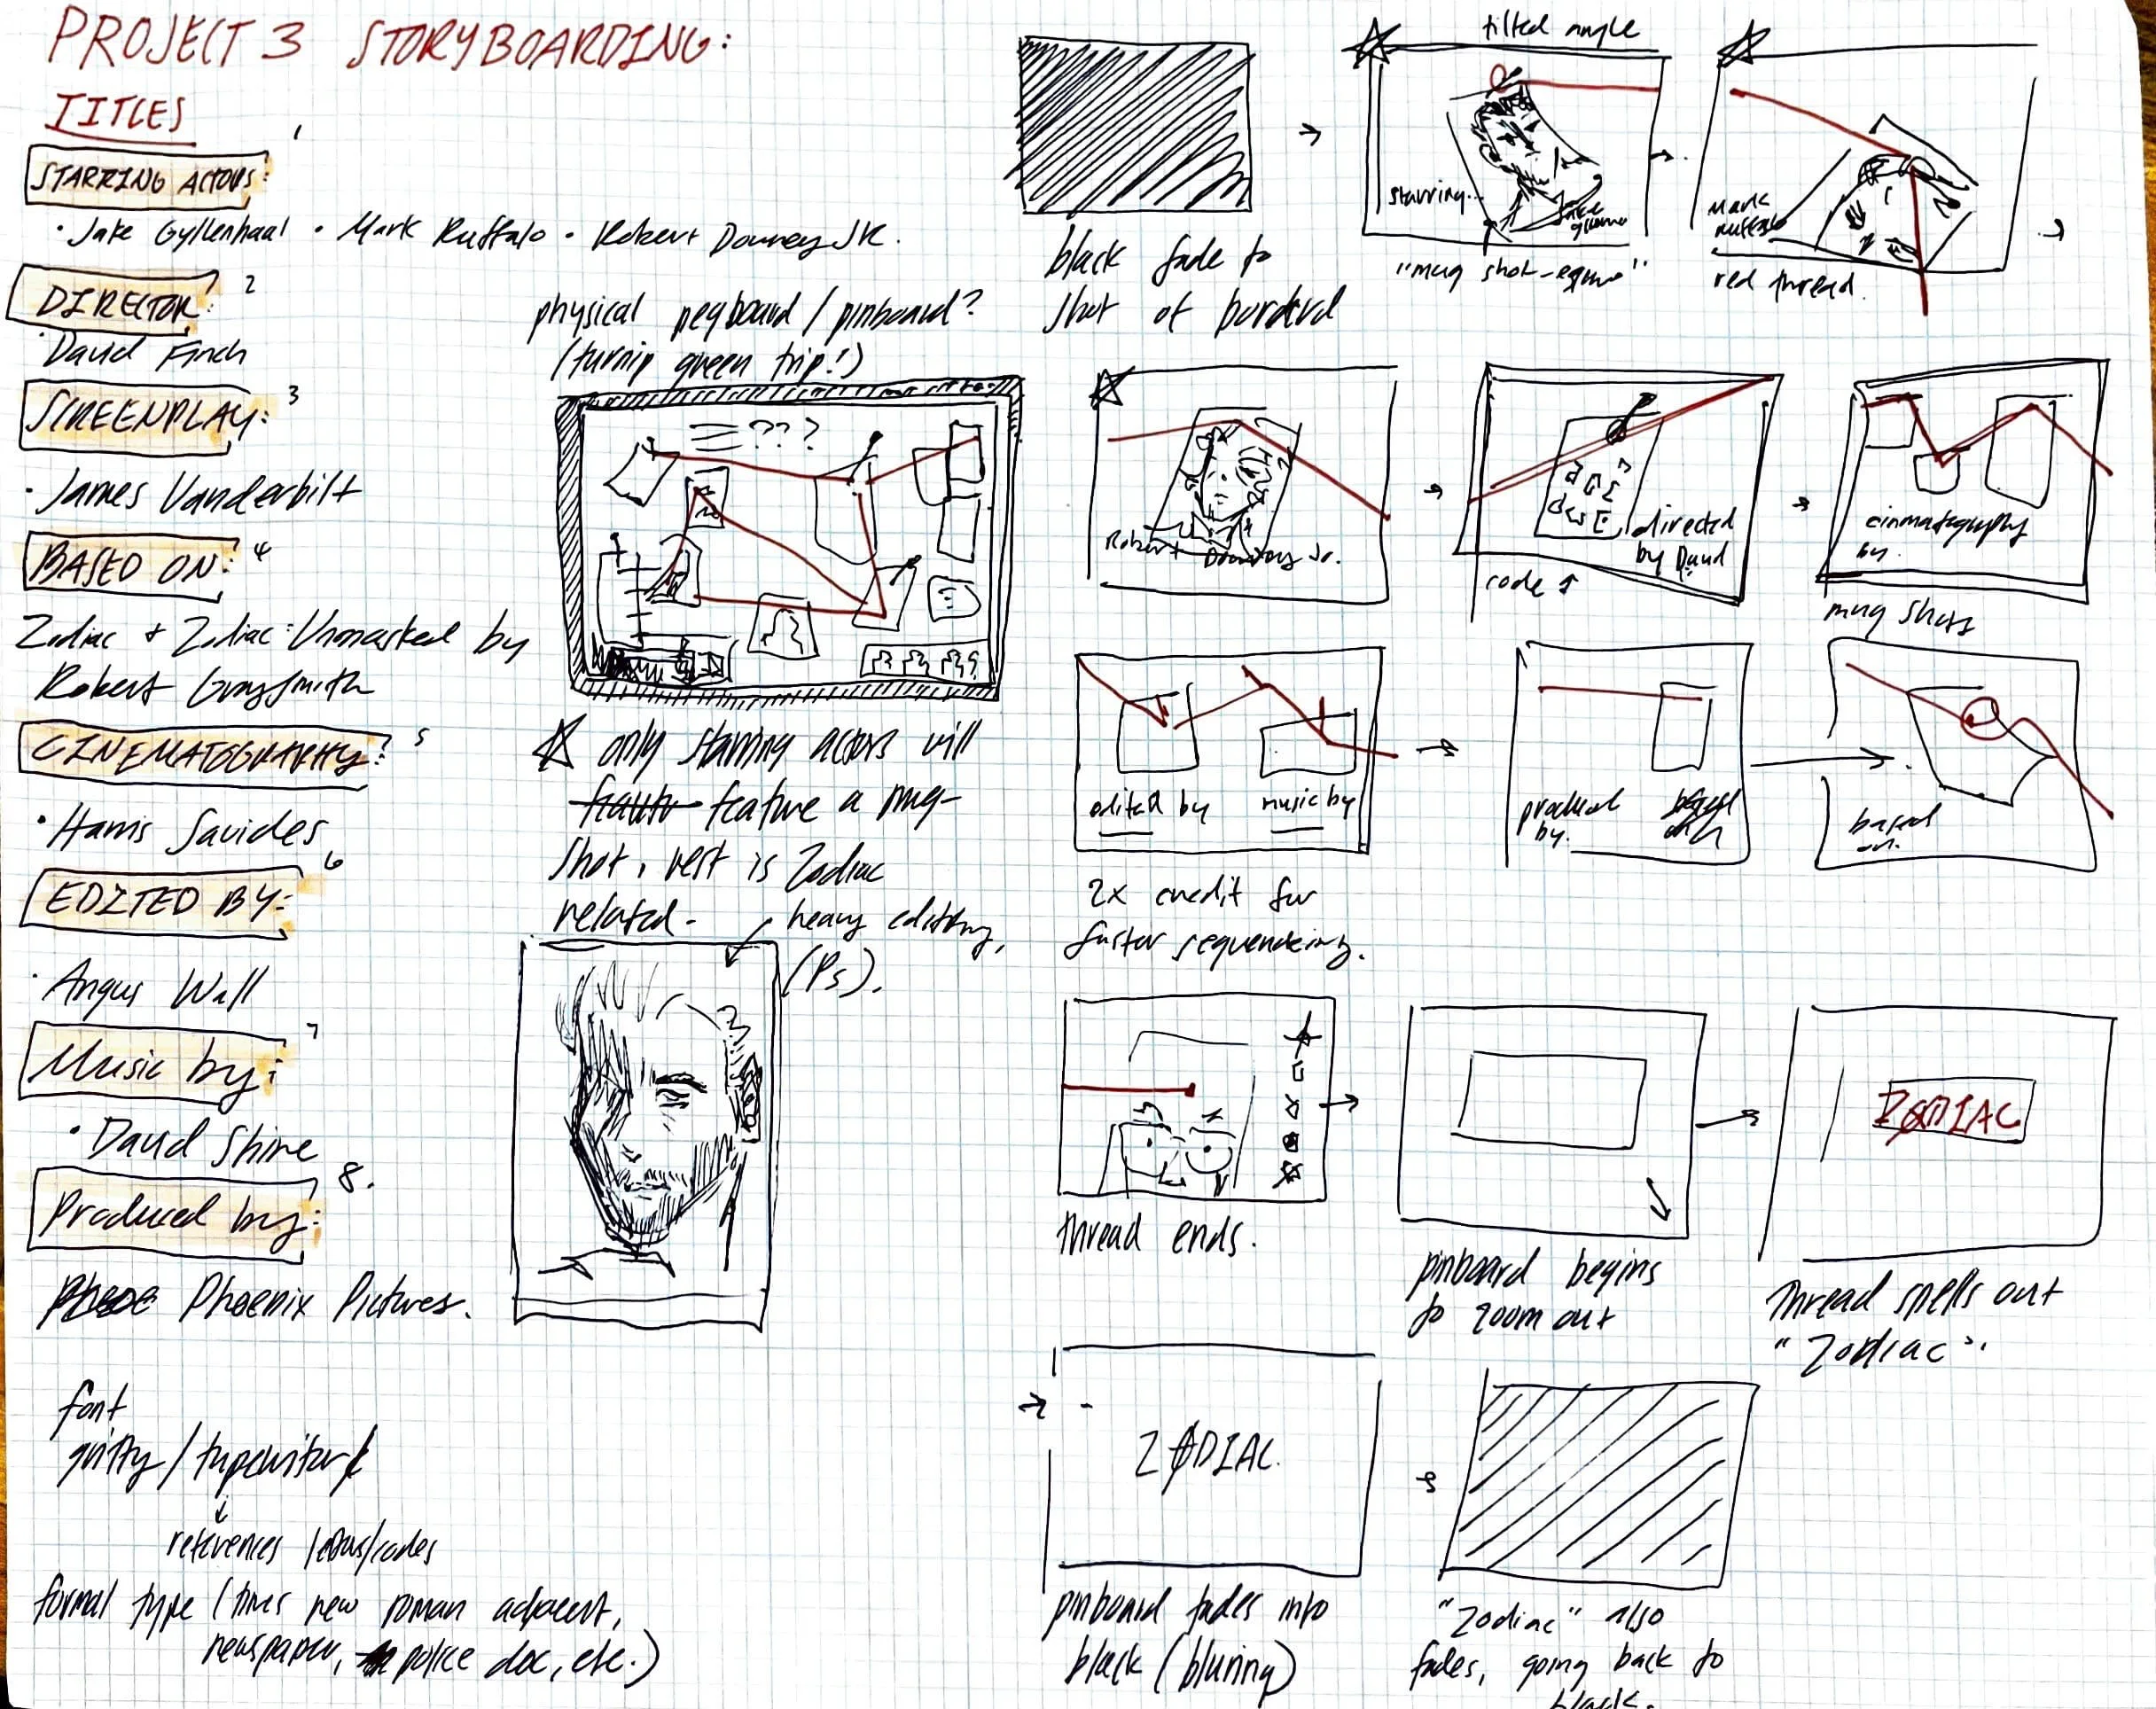 PROJECT 3 STORYBOARDING:
TITLES
STARRING ACTORS: 1
· Jake Gyllenhaal · Mark Ruffalo · Robert Downey JR.
DIRECTOR: 2
· David Finch
SCREENPLAY: 3
· James Vanderbilt
BASED ON: 4
Zodiac + Zodiac: Unmasked by
Robert Graysmith
CINEMATOGRAPHY: 5
· Harris Savides
EDITED BY: 6
· Angus Wall
Music by: 7
· David Shire
Produced by: 8.
Phoenix Pictures.
font
gritty/typewriter
references letters/codes
formal type (times new roman adjacent,
newspaper, police doc, etc.)
physical pegboard/pinboard?
(turnip green trip!)
???
☆ only starring actors will
feature a mug-
shot, rest is Zodiac
related.
heavy editing,
(Ps).
black fade to
shot of
tilted angle
starring...
Jake
"mug shot-esque"
Mark
Ruffalo
red thread.
Robert Downey Jr.
directed
by David
code ↑
cinematography
by.
mug shots
edited by
music by
2x credit for
faster sequencing.
produced
by.
based
on.
thread ends.
pinboard begins
to zoom out
ZODIAC
thread spells out
"Zodiac".
ZODIAC.
pinboard fades into
black (bluring)
"Zodiac" also
fades, going back to
black.